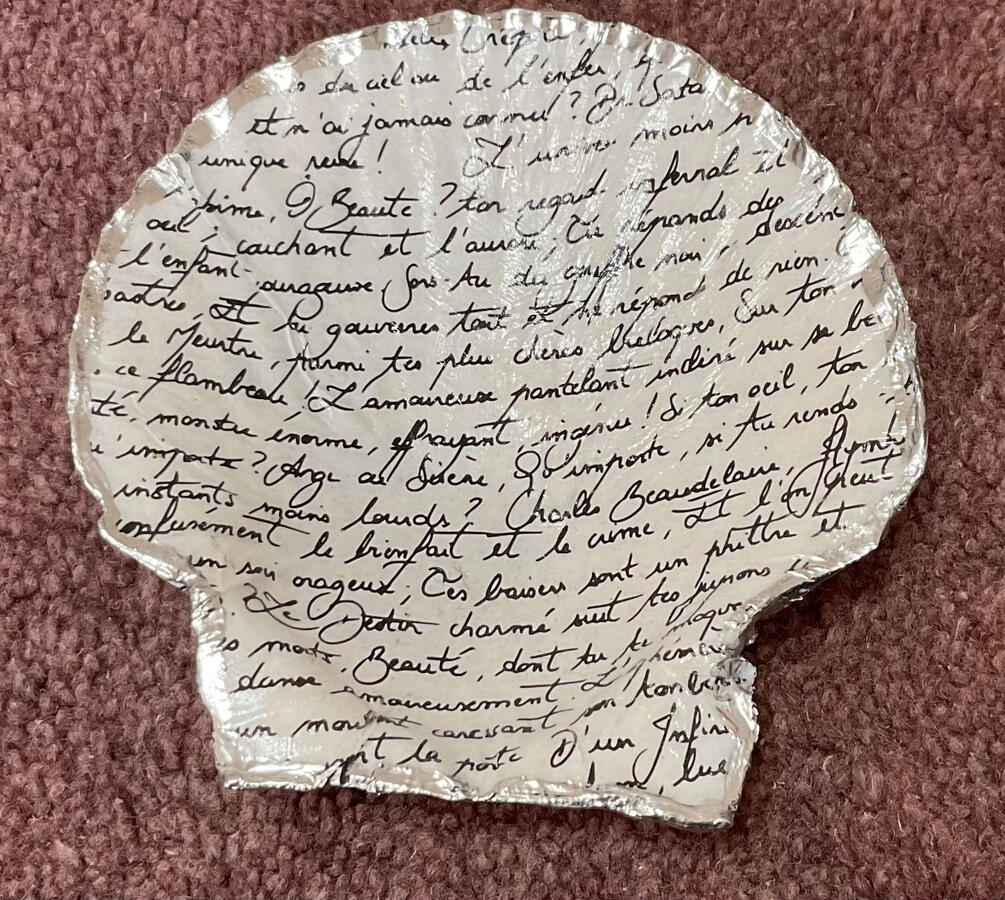 du ciel ou de l'enfer,
et n'ai jamais connu? De Sata
unique reine! L'univers moins
O Beauté? ton regard infernal et
couchant et l'aurore; Tu répands des
l'enfant courageux, Sors-tu du gouffre noir, descen
astres, Et tu gouvernes tout et ne réponds de rien.
le Meurtre, Parmi tes plus chères breloques, Sur ton
ce flambeau! L'amoureux pantelant incliné sur sa be
té, monstre énorme, effrayant, ingénu! Si ton oeil, ton
qu'importe? Ange ou Sirène, Qu'importe, si tu rends
instants moins lourds? Charles Beaudelaire,
confusément le bienfait et le crime, Et l'on peut
un soir orageux; Tes baisers sont un philtre et
? Le Destin charmé suit tes jupons
morts, Beauté, dont tu te moques
danse amoureusement. L'éphémère
un moribond caressant son tombeau
la porte D'un Infini
lue